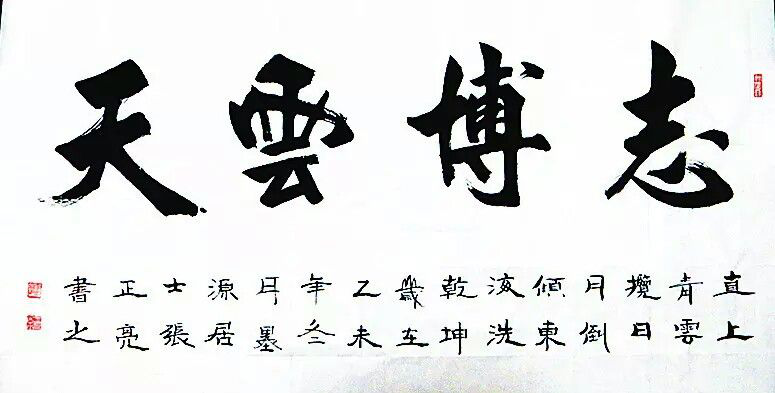 志博雲天
直上
青雲
攬日
月倒
傾東
海洗
乾坤
歲在
乙未
年冬
月墨
源居
士張
正亮
書之